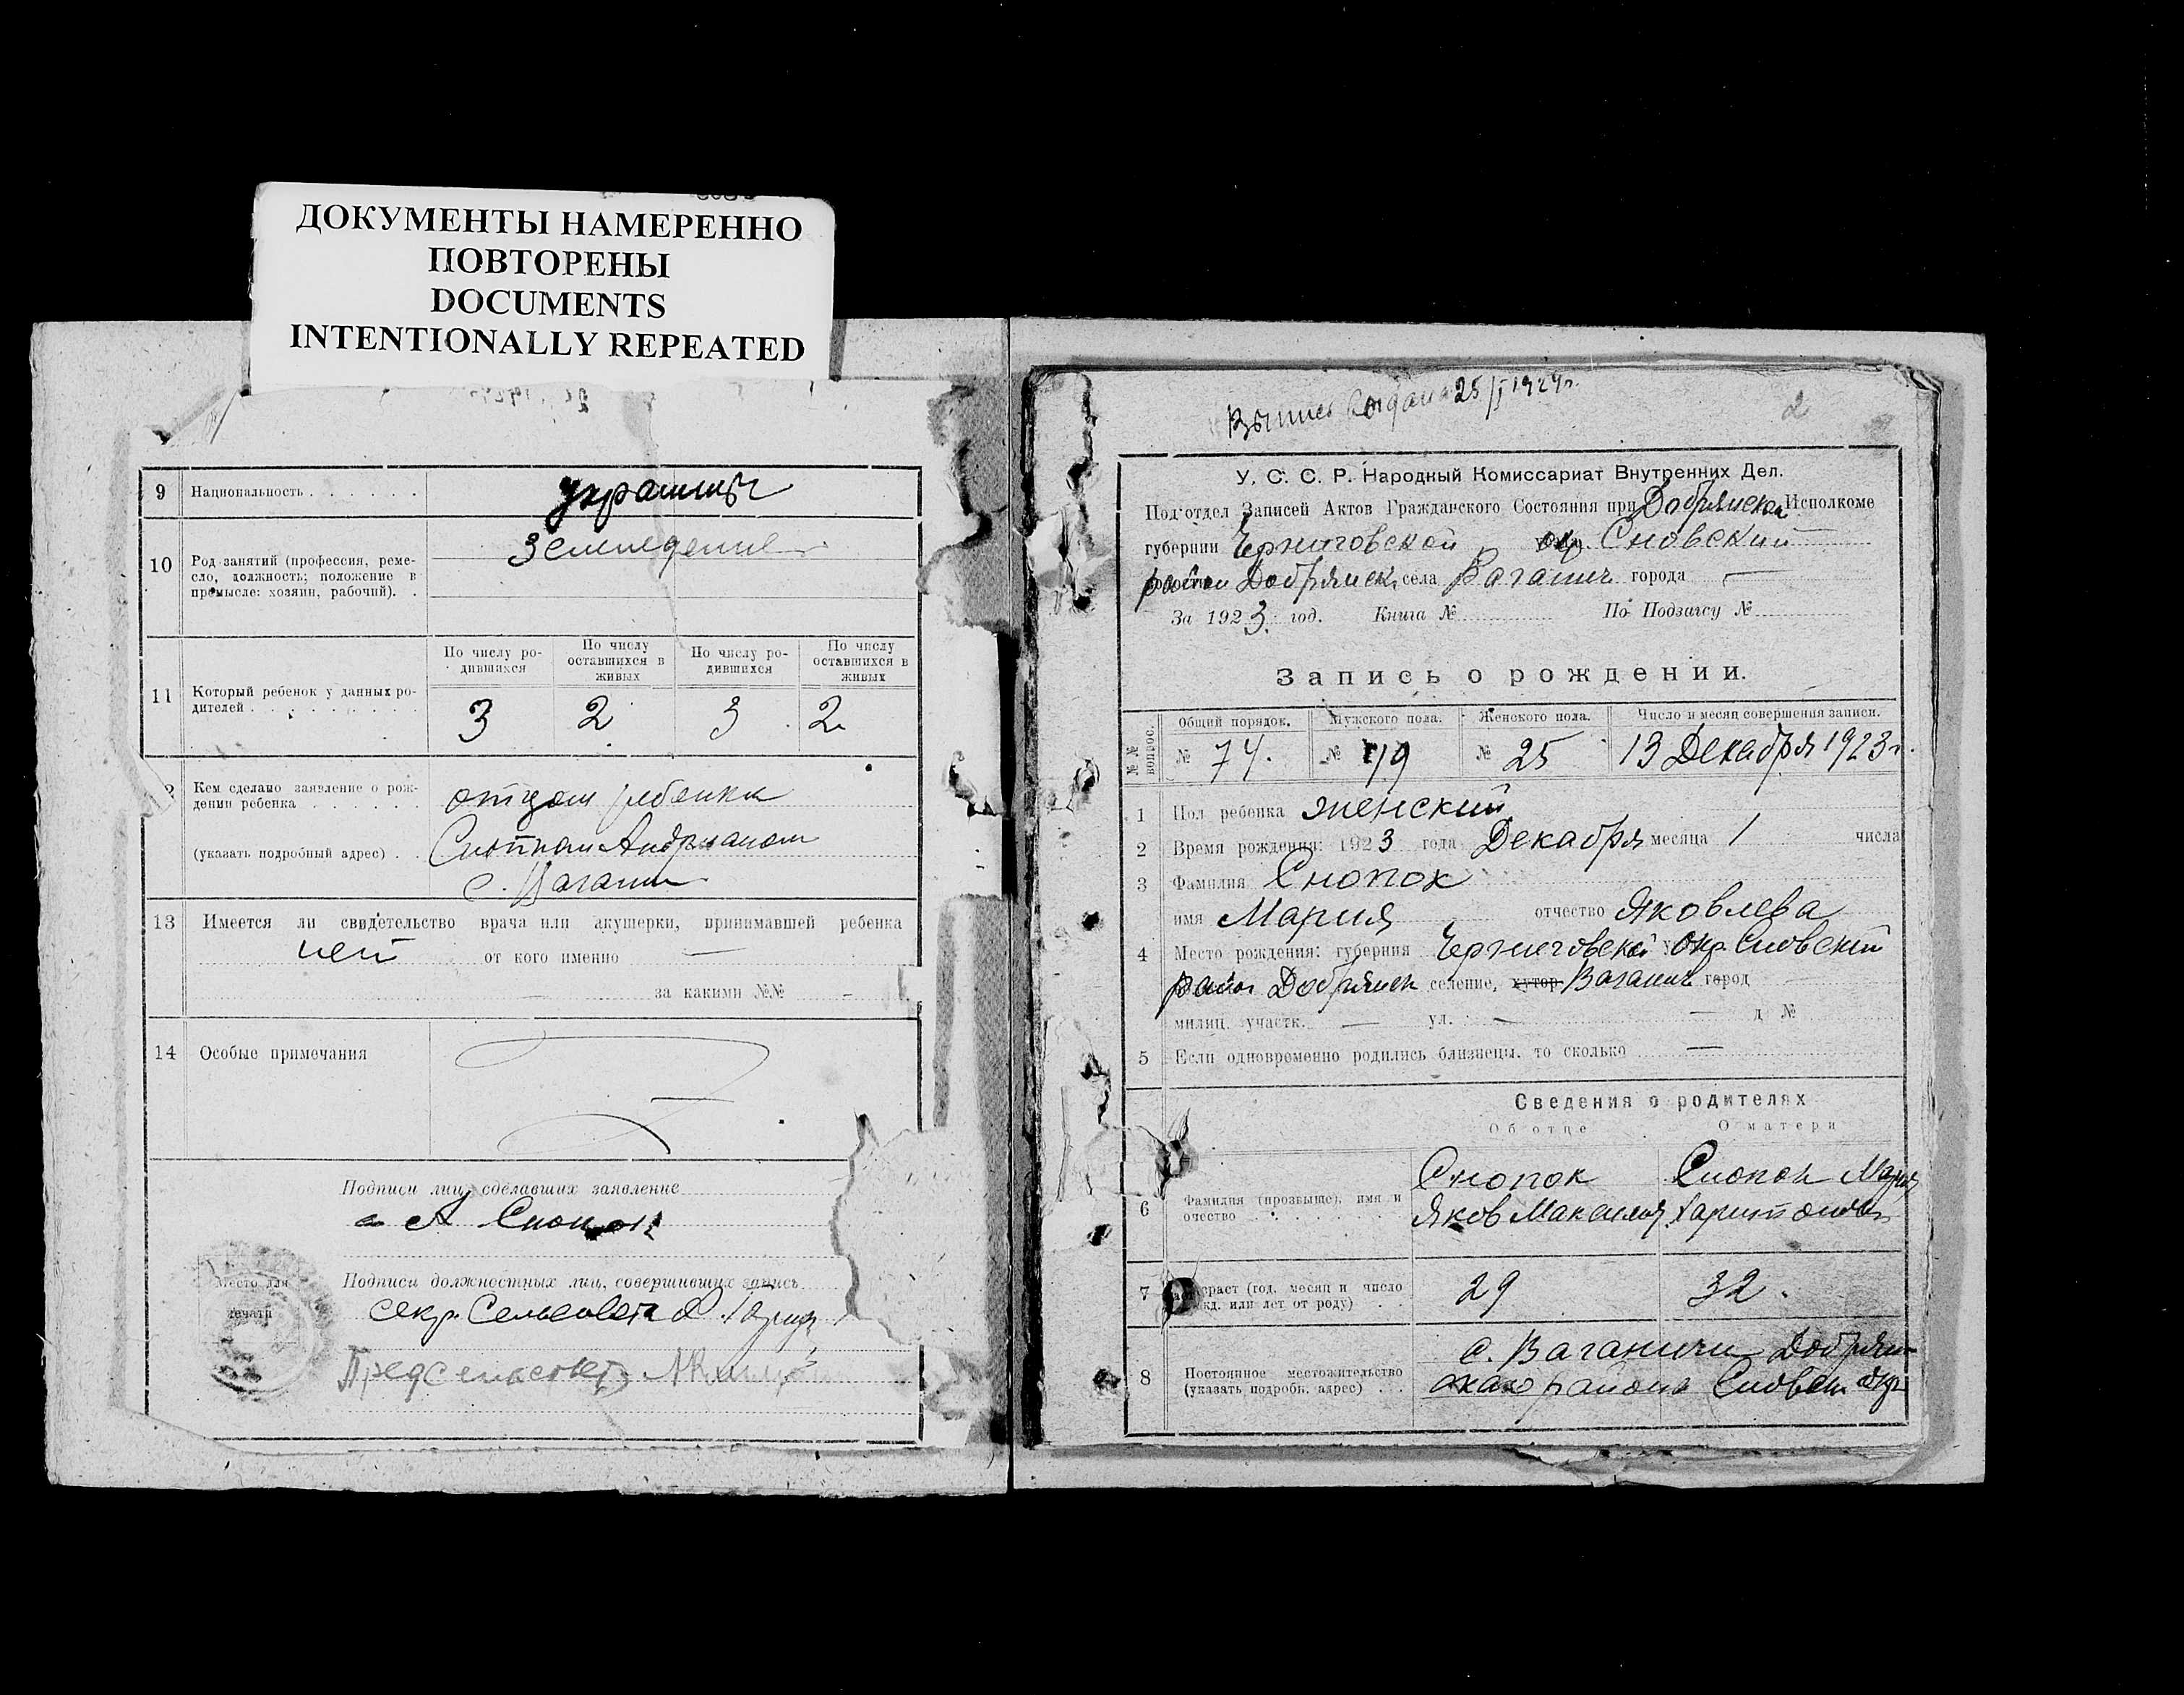 ДОКУМЕНТЫ НАМЕРЕННО
ПОВТОРЕНЫ
DOCUMENTS
INTENTIONALLY REPEATED
9 Национальность . . . . . .
10 Род занятий (профессия, реме-
сло, должность; положение в
промысле: хозяин, рабочий). .
Земледелие
11 Который ребенок у данных ро-
дителей . . . . . . . . .
По числу ро-
дившихся
По числу
оставшихся в
живых
По числу ро-
дившихся
По числу
оставшихся в
живых
3 2 3 2
Кем сделано заявление о рож-
дении ребенка . . . . . . отцом ребенка
(указать подробный адрес) . .
13 Имеется ли свидетельство врача или акушерки, принимавшей ребенка
нет от кого именно —
за какими №№ -
14 Особые примечания
Подписи лиц, сделавших заявление
А Снопок
Место для
печати
Подписи должностных лиц, совершивших запись
секр. Сельсовета
Выпись выдана 25/I 1924г.
2
У. С. С. Р. Народный Комиссариат Внутренних Дел.
Под'отдел Записей Актов Гражданского Состояния при Добрянском Исполкоме
губернии Черниговской окр. Сновский
район Добрянск. села Ваганич города —
За 1923 год. Книга № По Подзагсу №
Запись о рождении.
№ № вопрос.
Общий порядок. Мужского пола. Женского пола. Число и месяц совершения записи.
№ 74. № 49 № 25 13 Декабря 1923 г.
1 Пол ребенка женский
2 Время рождения: 1923 года Декабря месяца 1 числа
3 Фамилия Снопок
имя Мария отчество Яковлева
4 Место рождения: губерния Черниговской окр. Сновский
район Добрянск селение, хутор Ваганич город
милиц. участк. — ул. — — д №
5 Если одновременно родились близнецы, то сколько —
Сведения о родителях
Об отце О матери
6 Фамилия (прозвище), имя и
очество . . . . . . .
Снопок
Яков Максимов
Снопок Мария
Харитонова
7 Возраст (год, месяц и число
рожд. или лет от роду) . .
29 32.
8 Постоянное местожительство
(указать подробн. адрес) . .
с. Ваганичи Добрян-
скаго района Сновск. окр